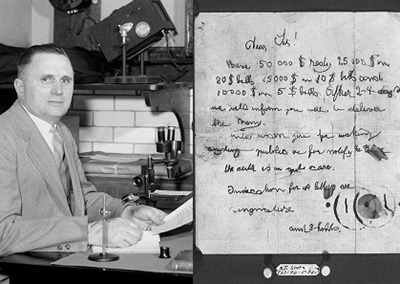 Dear Sir!
Have 50000 $ redy 25000 $ in
20 $ bills 15000 $ in 10 $ bills and
10000 $ in 5 $ bills. After 2-4 days
we will inform you were to deliver
the Mony.
We warn you for making
public or for notify the
the child is in gute care.
Indication for all letters are
singnature
and 3 holes.